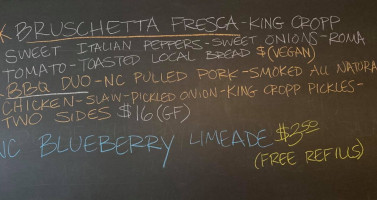 BRUSCHETTA FRESCA-KING CROPP
SWEET ITALIAN PEPPERS-SWEET ONIONS-ROMA
TOMATO-TOASTED LOCAL BREAD $(VEGAN)
BBQ DUO-NC PULLED PORK-SMOKED ALL NATURA
CHICKEN-SLAW-PICKLED ONION-KING CROPP PICKLES-
TWO SIDES $16 (GF)
NC BLUEBERRY LIMEADE $3.50
(FREE REFILLS)